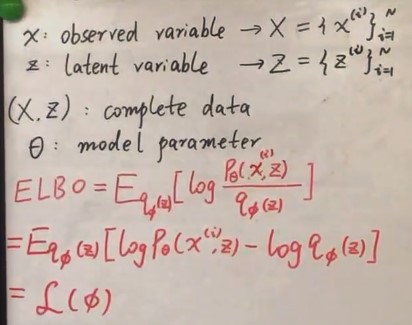 x: observed variable → X = {x^{(i)}}_{i=1}^{N}
z: latent variable → Z = {z^{(i)}}_{i=1}^{N}
(X, Z): complete data
θ: model parameter
ELBO = E_{q_ϕ(z)} [log P_θ(x^{(i)}, z) / q_ϕ(z)]
= E_{q_ϕ(z)} [log P_θ(x^{(i)}, z) - log q_ϕ(z)]
= ℒ(ϕ)